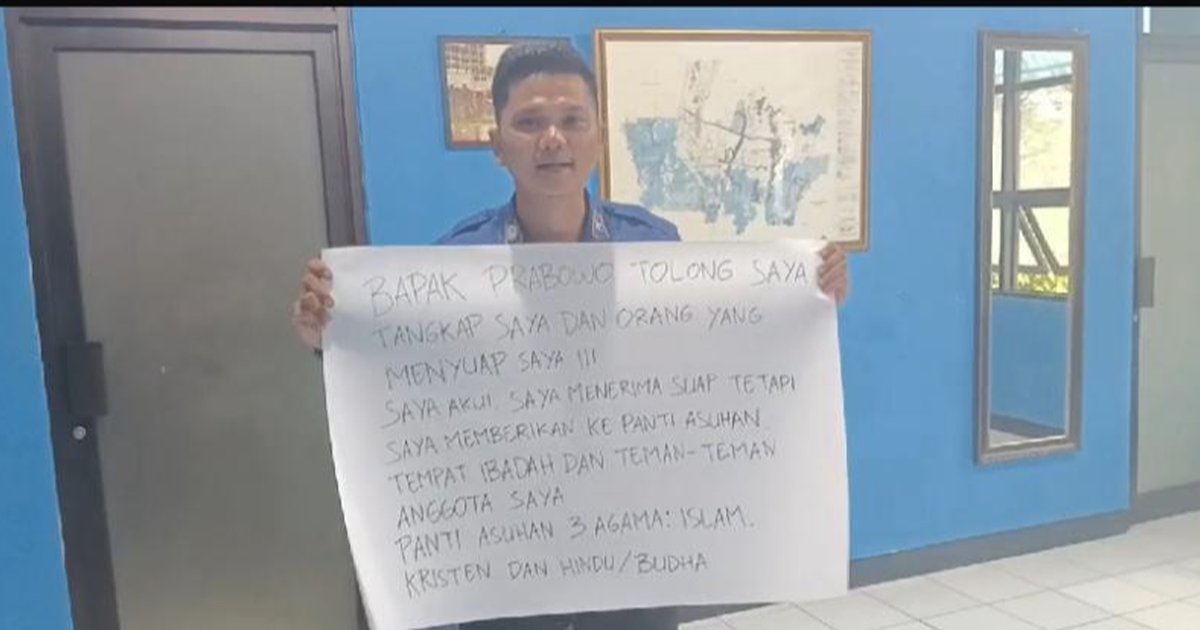 BAPAK PRABOWO TOLONG SAYA
TANGKAP SAYA DAN ORANG YANG
MENYUAP SAYA !!!
SAYA AKUI. SAYA MENERIMA SUAP TETAPI
SAYA MEMBERIKAN KE PANTI ASUHAN
TEMPAT IBADAH DAN TEMAN-TEMAN
ANGGOTA SAYA
PANTI ASUHAN 3 AGAMA: ISLAM.
KRISTEN DAN HINDU/BUDHA